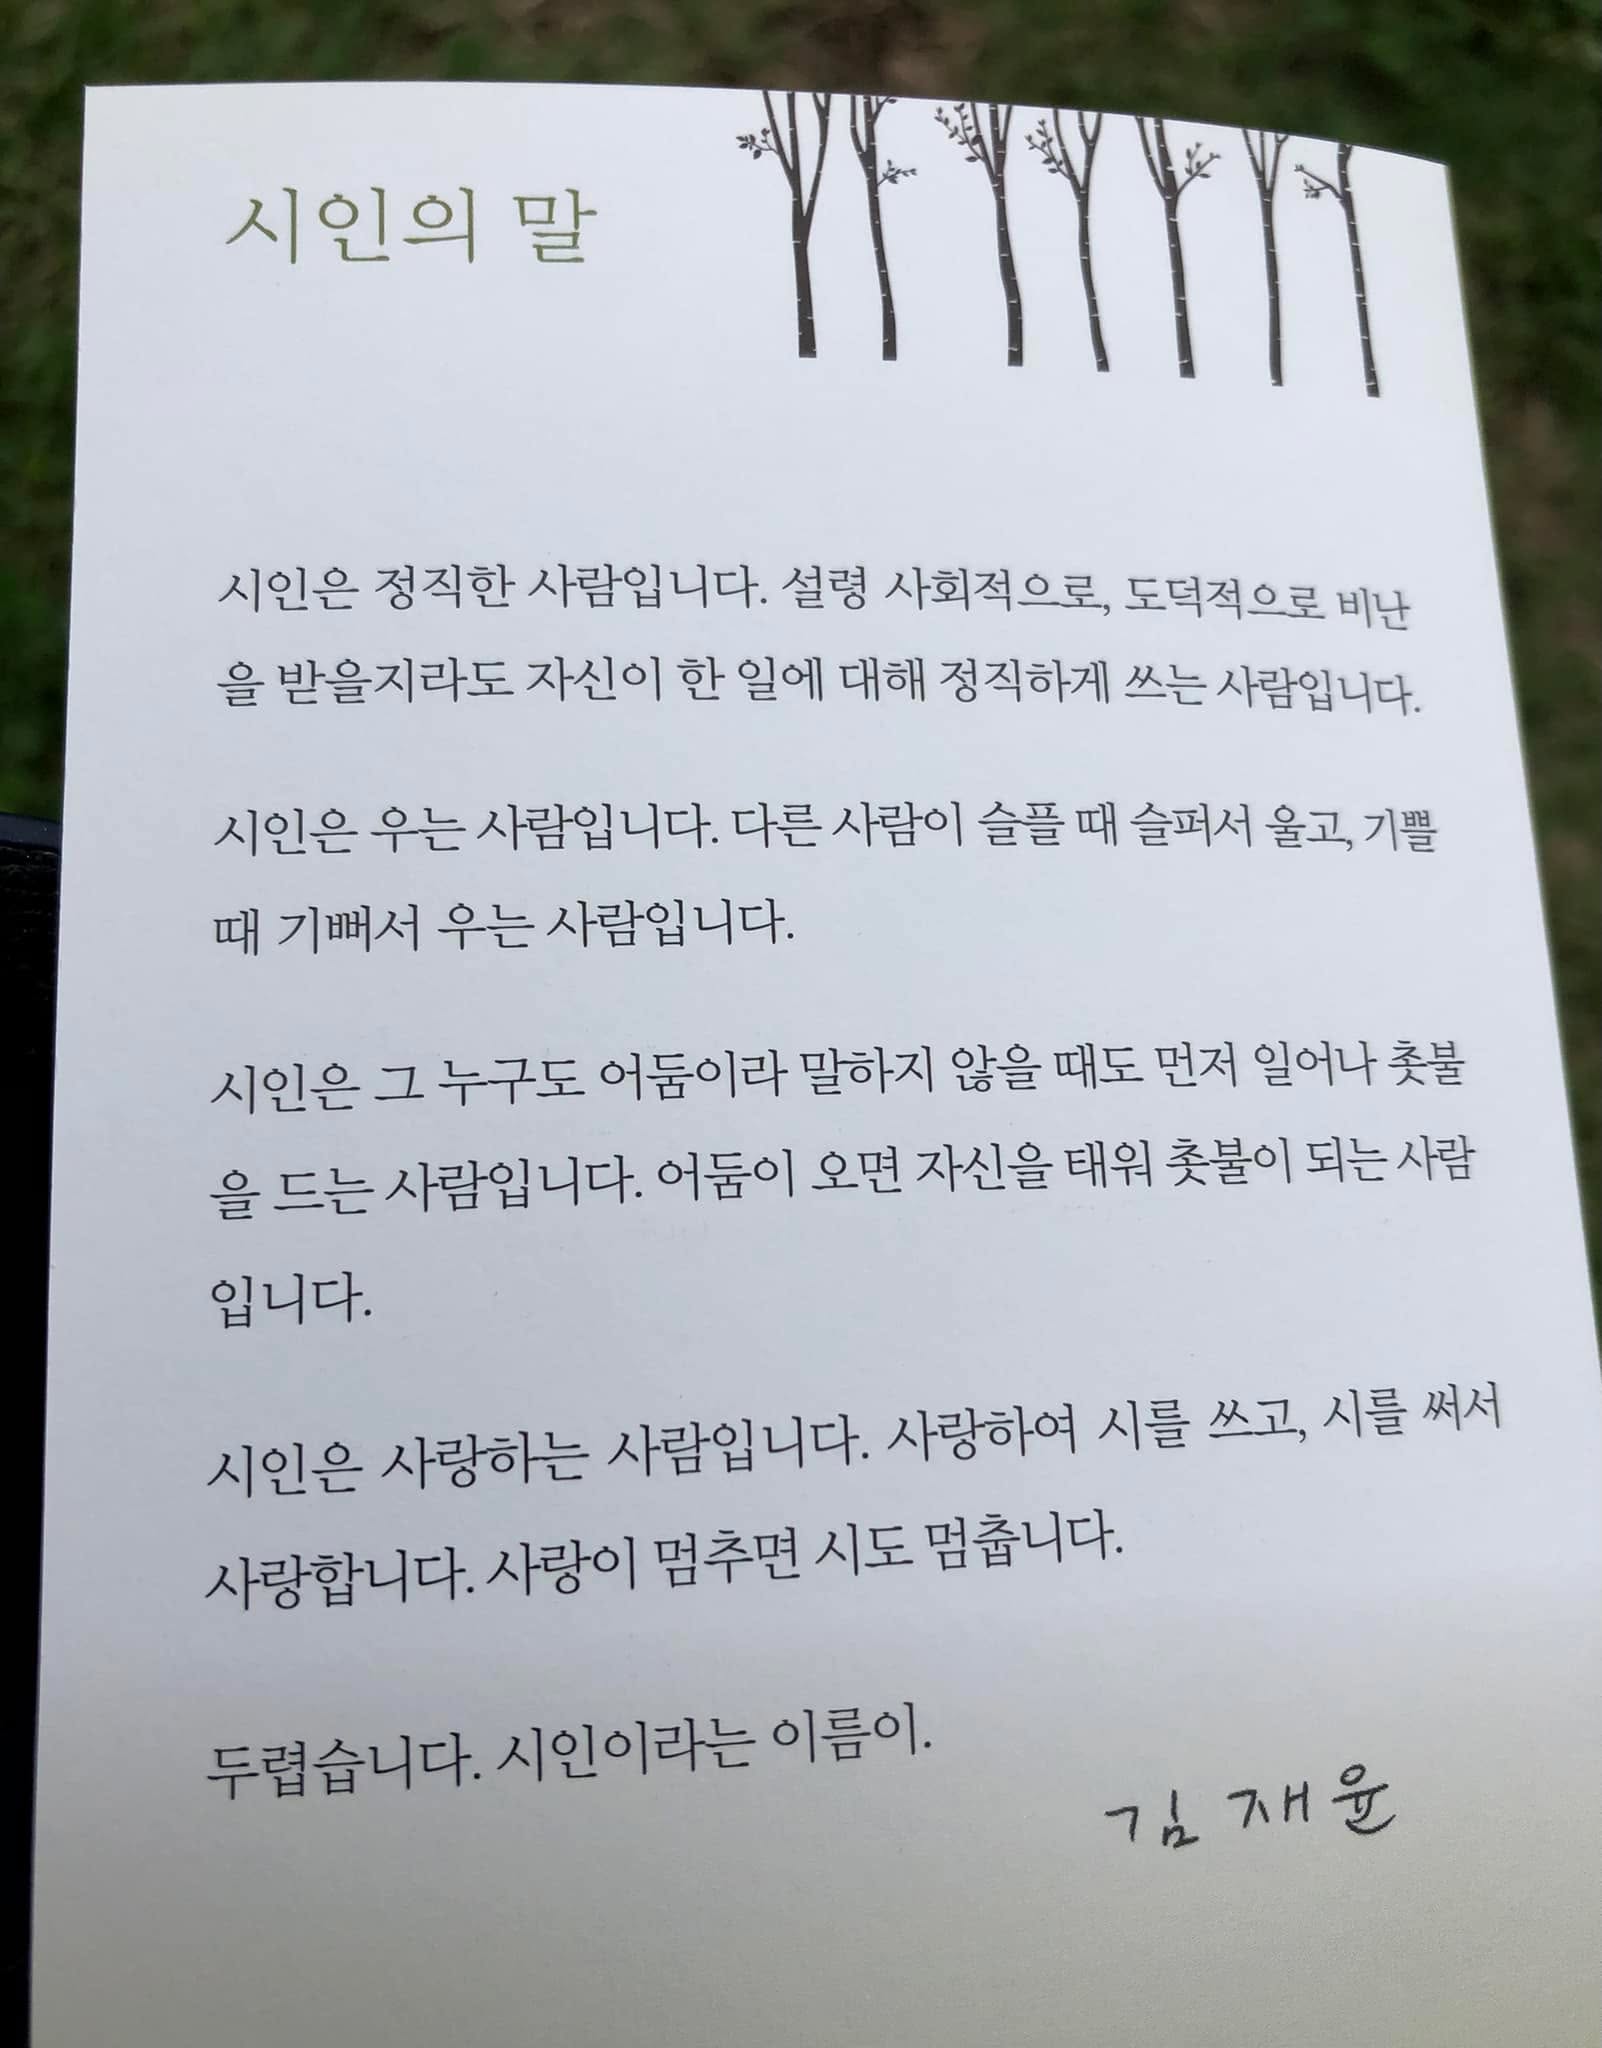 시인의 말
시인은 정직한 사람입니다. 설령 사회적으로, 도덕적으로 비난
을 받을지라도 자신이 한 일에 대해 정직하게 쓰는 사람입니다.
시인은 우는 사람입니다. 다른 사람이 슬플 때 슬퍼서 울고, 기쁠
때 기뻐서 우는 사람입니다.
시인은 그 누구도 어둠이라 말하지 않을 때도 먼저 일어나 촛불
을 드는 사람입니다. 어둠이 오면 자신을 태워 촛불이 되는 사람
입니다.
시인은 사랑하는 사람입니다. 사랑하여 시를 쓰고, 시를 써서
사랑합니다. 사랑이 멈추면 시도 멈춥니다.
두렵습니다. 시인이라는 이름이.
김재윤